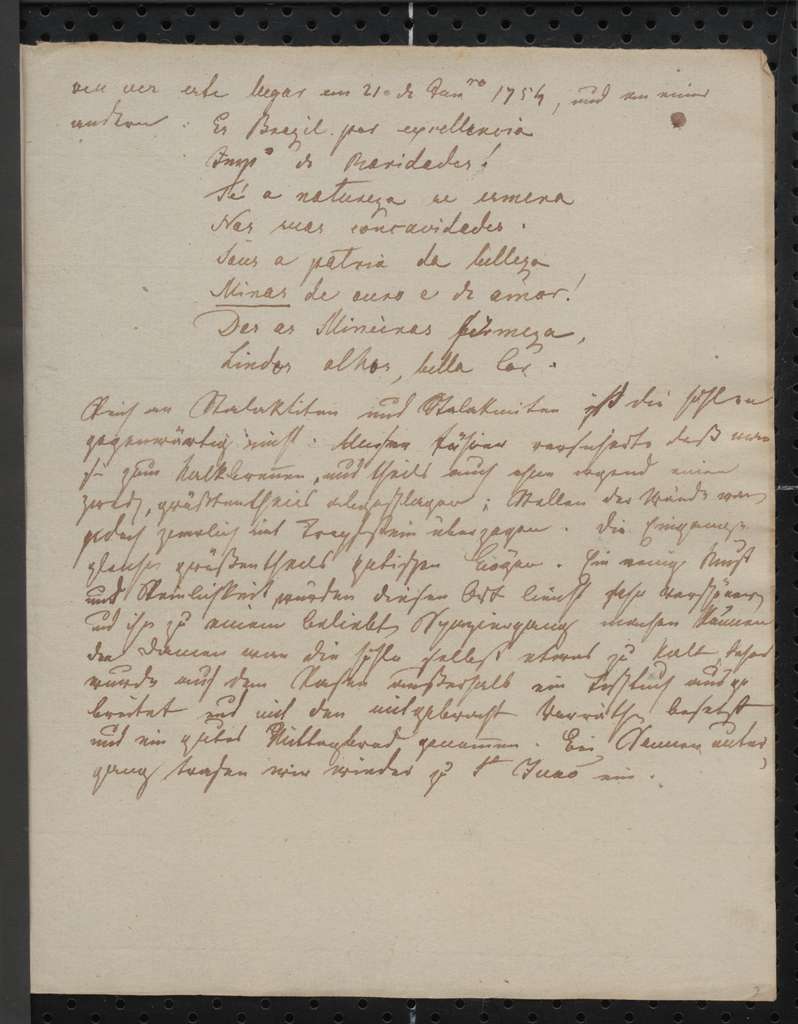 veu ver este lugar em 21 de Janro 1754, und an einer
andern: Es Brazil por excellencia
Impo de Raridades!
Se a natureza se esmera
Nas suas concavidades.
Sous a patria da belleza
Minas de ouro e de amor!
Das as Mineiras firmeza,
Lindos olhos, bella Cor.
Reich an Stalaktiten und Stalakmiten ist die Höhle
gegenwärtig nicht. Unser Führer versicherte daß man
sie zum Kalkbrennen, und theils auch ohne irgend einen
Zweck, größtentheils abgeschlagen; Stellen der Wände waren
jedoch ziemlich mit Tropfstein überzogen. Die Eingänge
gleichen größtentheils gotischen Bögen. Ein wenig Kunst
und Reinlichkeit würden diesen Ort leicht sehr verschönern
und ihn zu einem beliebten Spaziergang machen können
den Damen war die Höhle selbst etwas zu kalt, daher
wurde auf dem Rasen außerhalb ein Tischtuch ausge
breitet und mit den mitgebrachten Vorräthen besetzt
und ein gutes Mittagbrod genommen. Bei Sonnenunter
gang trafen wir wieder zu St. João ein.